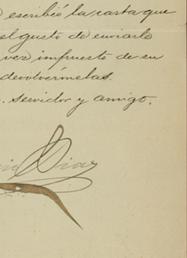 escribió la carta que
el gusto de enviarle
vez impuesto de su
devolvérmelas.
servidor y amigo.
Diaz